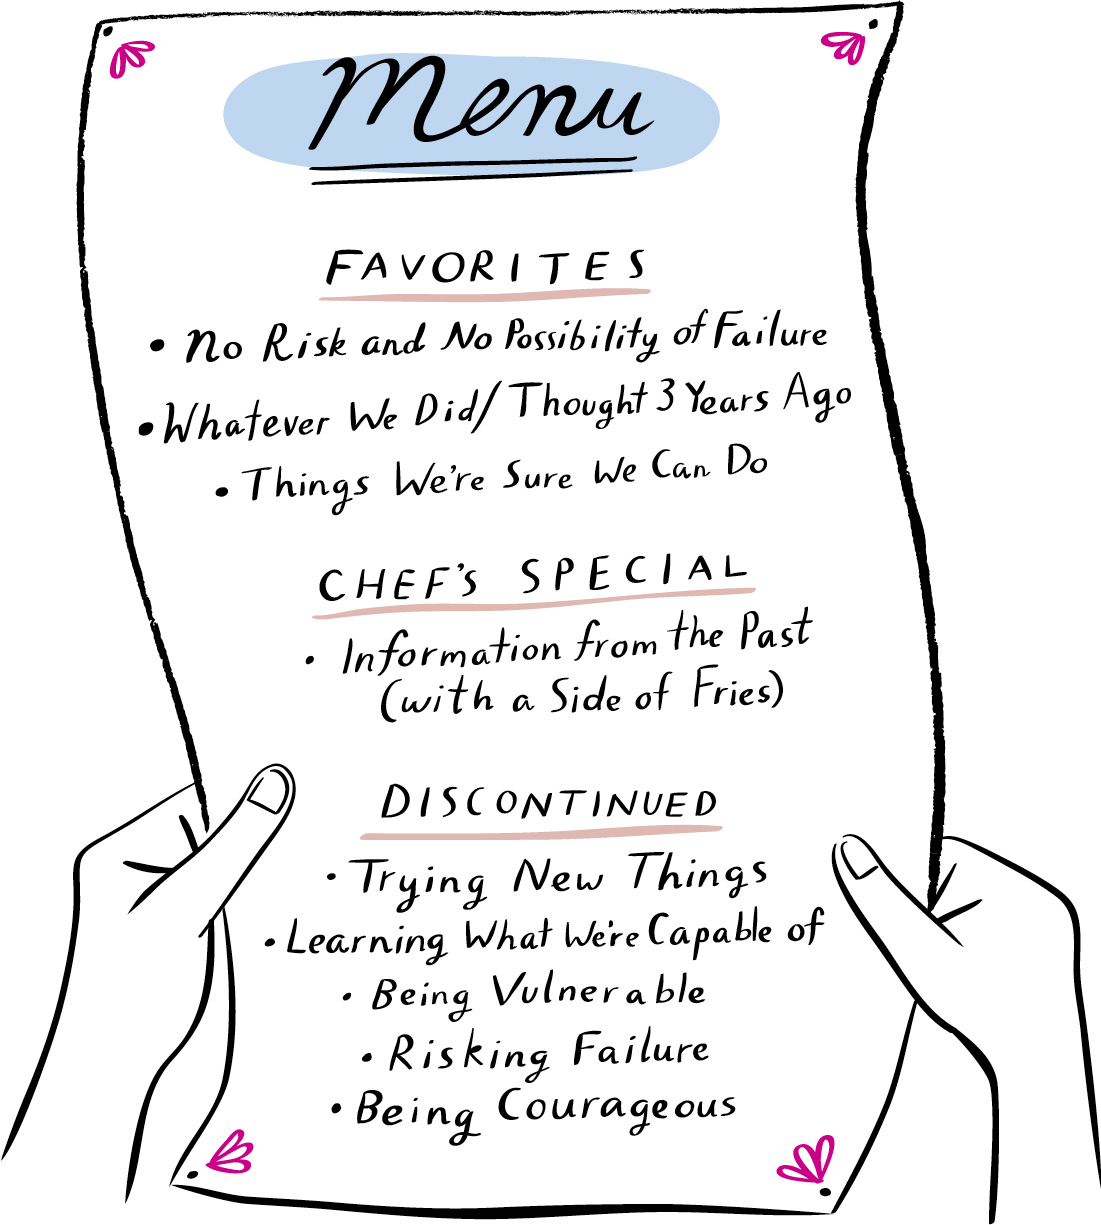 Menu
FAVORITES
• No Risk and No Possibility of Failure
• Whatever We Did/Thought 3 Years Ago
• Things We're Sure We Can Do
CHEF'S SPECIAL
• Information from the Past
(with a Side of Fries)
DISCONTINUED
• Trying New Things
• Learning What We're Capable of
• Being Vulnerable
• Risking Failure
• Being Courageous